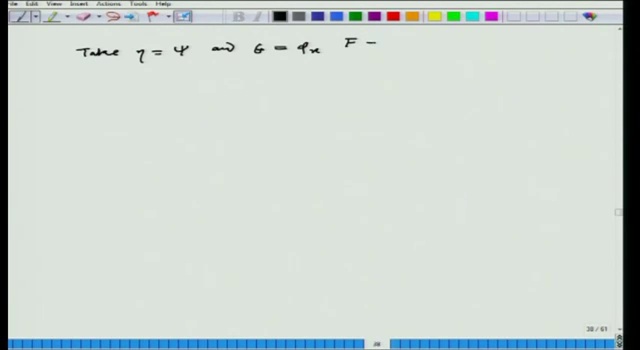 File Edit View Insert Actions Tools Help
Take η = Ψ and G = φx F -
38 / 61
38